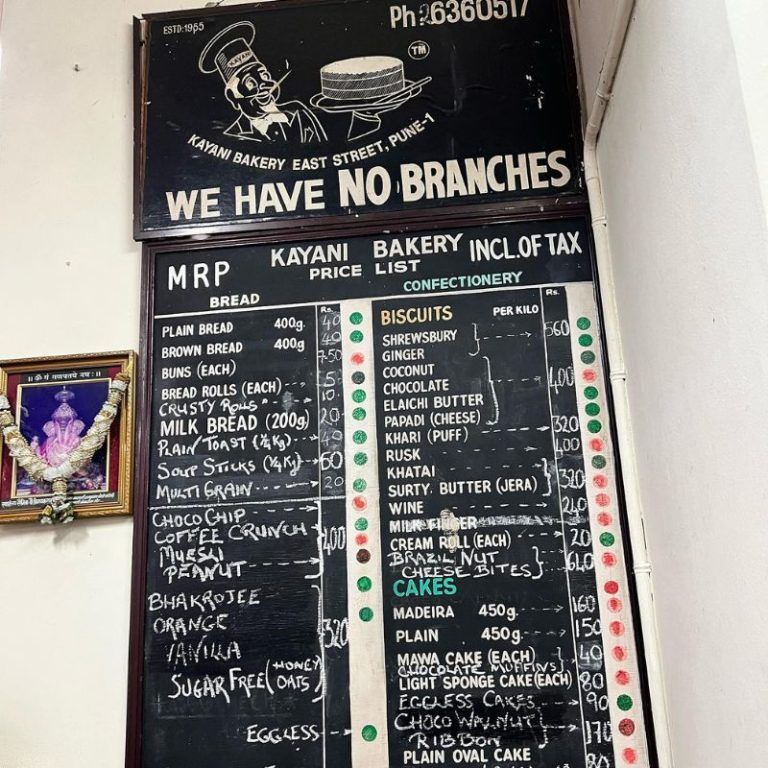 ESTD:1955
Ph:26360517
KAYANI
TM
KAYANI BAKERY EAST STREET, PUNE-1
WE HAVE NO BRANCHES
MRP
KAYANI BAKERY
PRICE LIST
INCL. OF TAX
BREAD
Rs.
PLAIN BREAD 400g. 40
BROWN BREAD 400g 40
BUNS (EACH) 7-50
BREAD ROLLS (EACH) 5
CRUSTY ROLLS 10
MILK BREAD (200g) 20
PLAIN/TOAST (¼ Kg) 40
SOUP STICKS (¼ Kg) 60
MULTI GRAIN 20
CHOCO CHIP
COFFEE CRUNCH
MUESLI
PEANUT
400
BHAKROJEE
ORANGE
VANILLA
SUGAR FREE (HONEY OATS)
320
EGGLESS
CONFECTIONERY
BISCUITS PER KILO Rs.
SHREWSBURY
GINGER
560
COCONUT
CHOCOLATE
ELAICHI BUTTER
PAPADI (CHEESE)
400
KHARI (PUFF) 320
RUSK 400
KHATAI
SURTY. BUTTER (JERA)
320
WINE 240
MILK FINGER
CREAM ROLL (EACH) 20
BRAZIL NUT
CHEESE BITES
640
CAKES
MADEIRA 450g 160
PLAIN 450g 150
MAWA CAKE (EACH)
CHOCOLATE MUFFINS
40
LIGHT SPONGE CAKE (EACH) 80
EGGLESS CAKES 90
CHOCO WALNUT
RIBBON
170
PLAIN OVAL CAKE 80